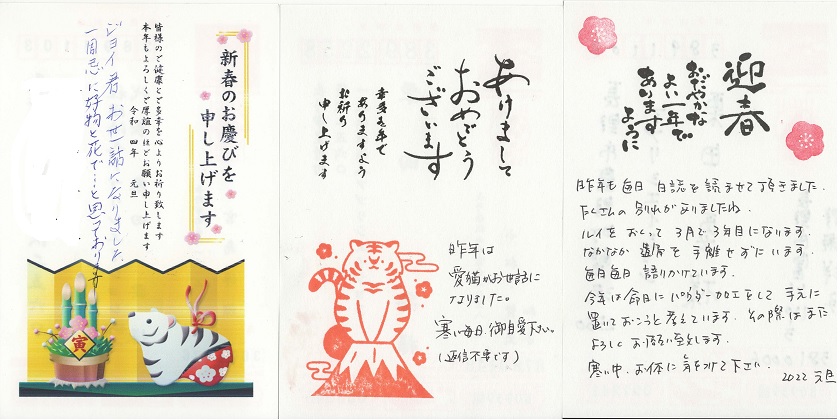 新春のお慶びを
申し上げます
皆様のご健康とご多幸を心よりお祈り致します
本年もよろしくご厚誼のほどお願い申し上げます
令和 四年 元旦
ジョイ君 お世話になりました
一周忌に好物と花で…と思っております
寅
あけまして
おめでとう
ございます
幸多き年で
ありますよう
お祈り
申し上げます
昨年は
愛猫がお世話に
なりました。
寒い毎日、御自愛下さい。
(返信不要です)
迎春
おだやかな
よい一年で
あります
ように
昨年も毎日 日誌を読ませて頂きました。
たくさんの別れがありましたね。
ルイをおくって3月で3年目になります。
なかなか遺骨を手離せずにいます。
毎日毎日語りかけています。
今年は命日にパウダー加工をして手元に
置いておこうと考えています。その際はまた
よろしくお願い致します。
寒い中、お体に気をつけて下さい。
2022 元旦